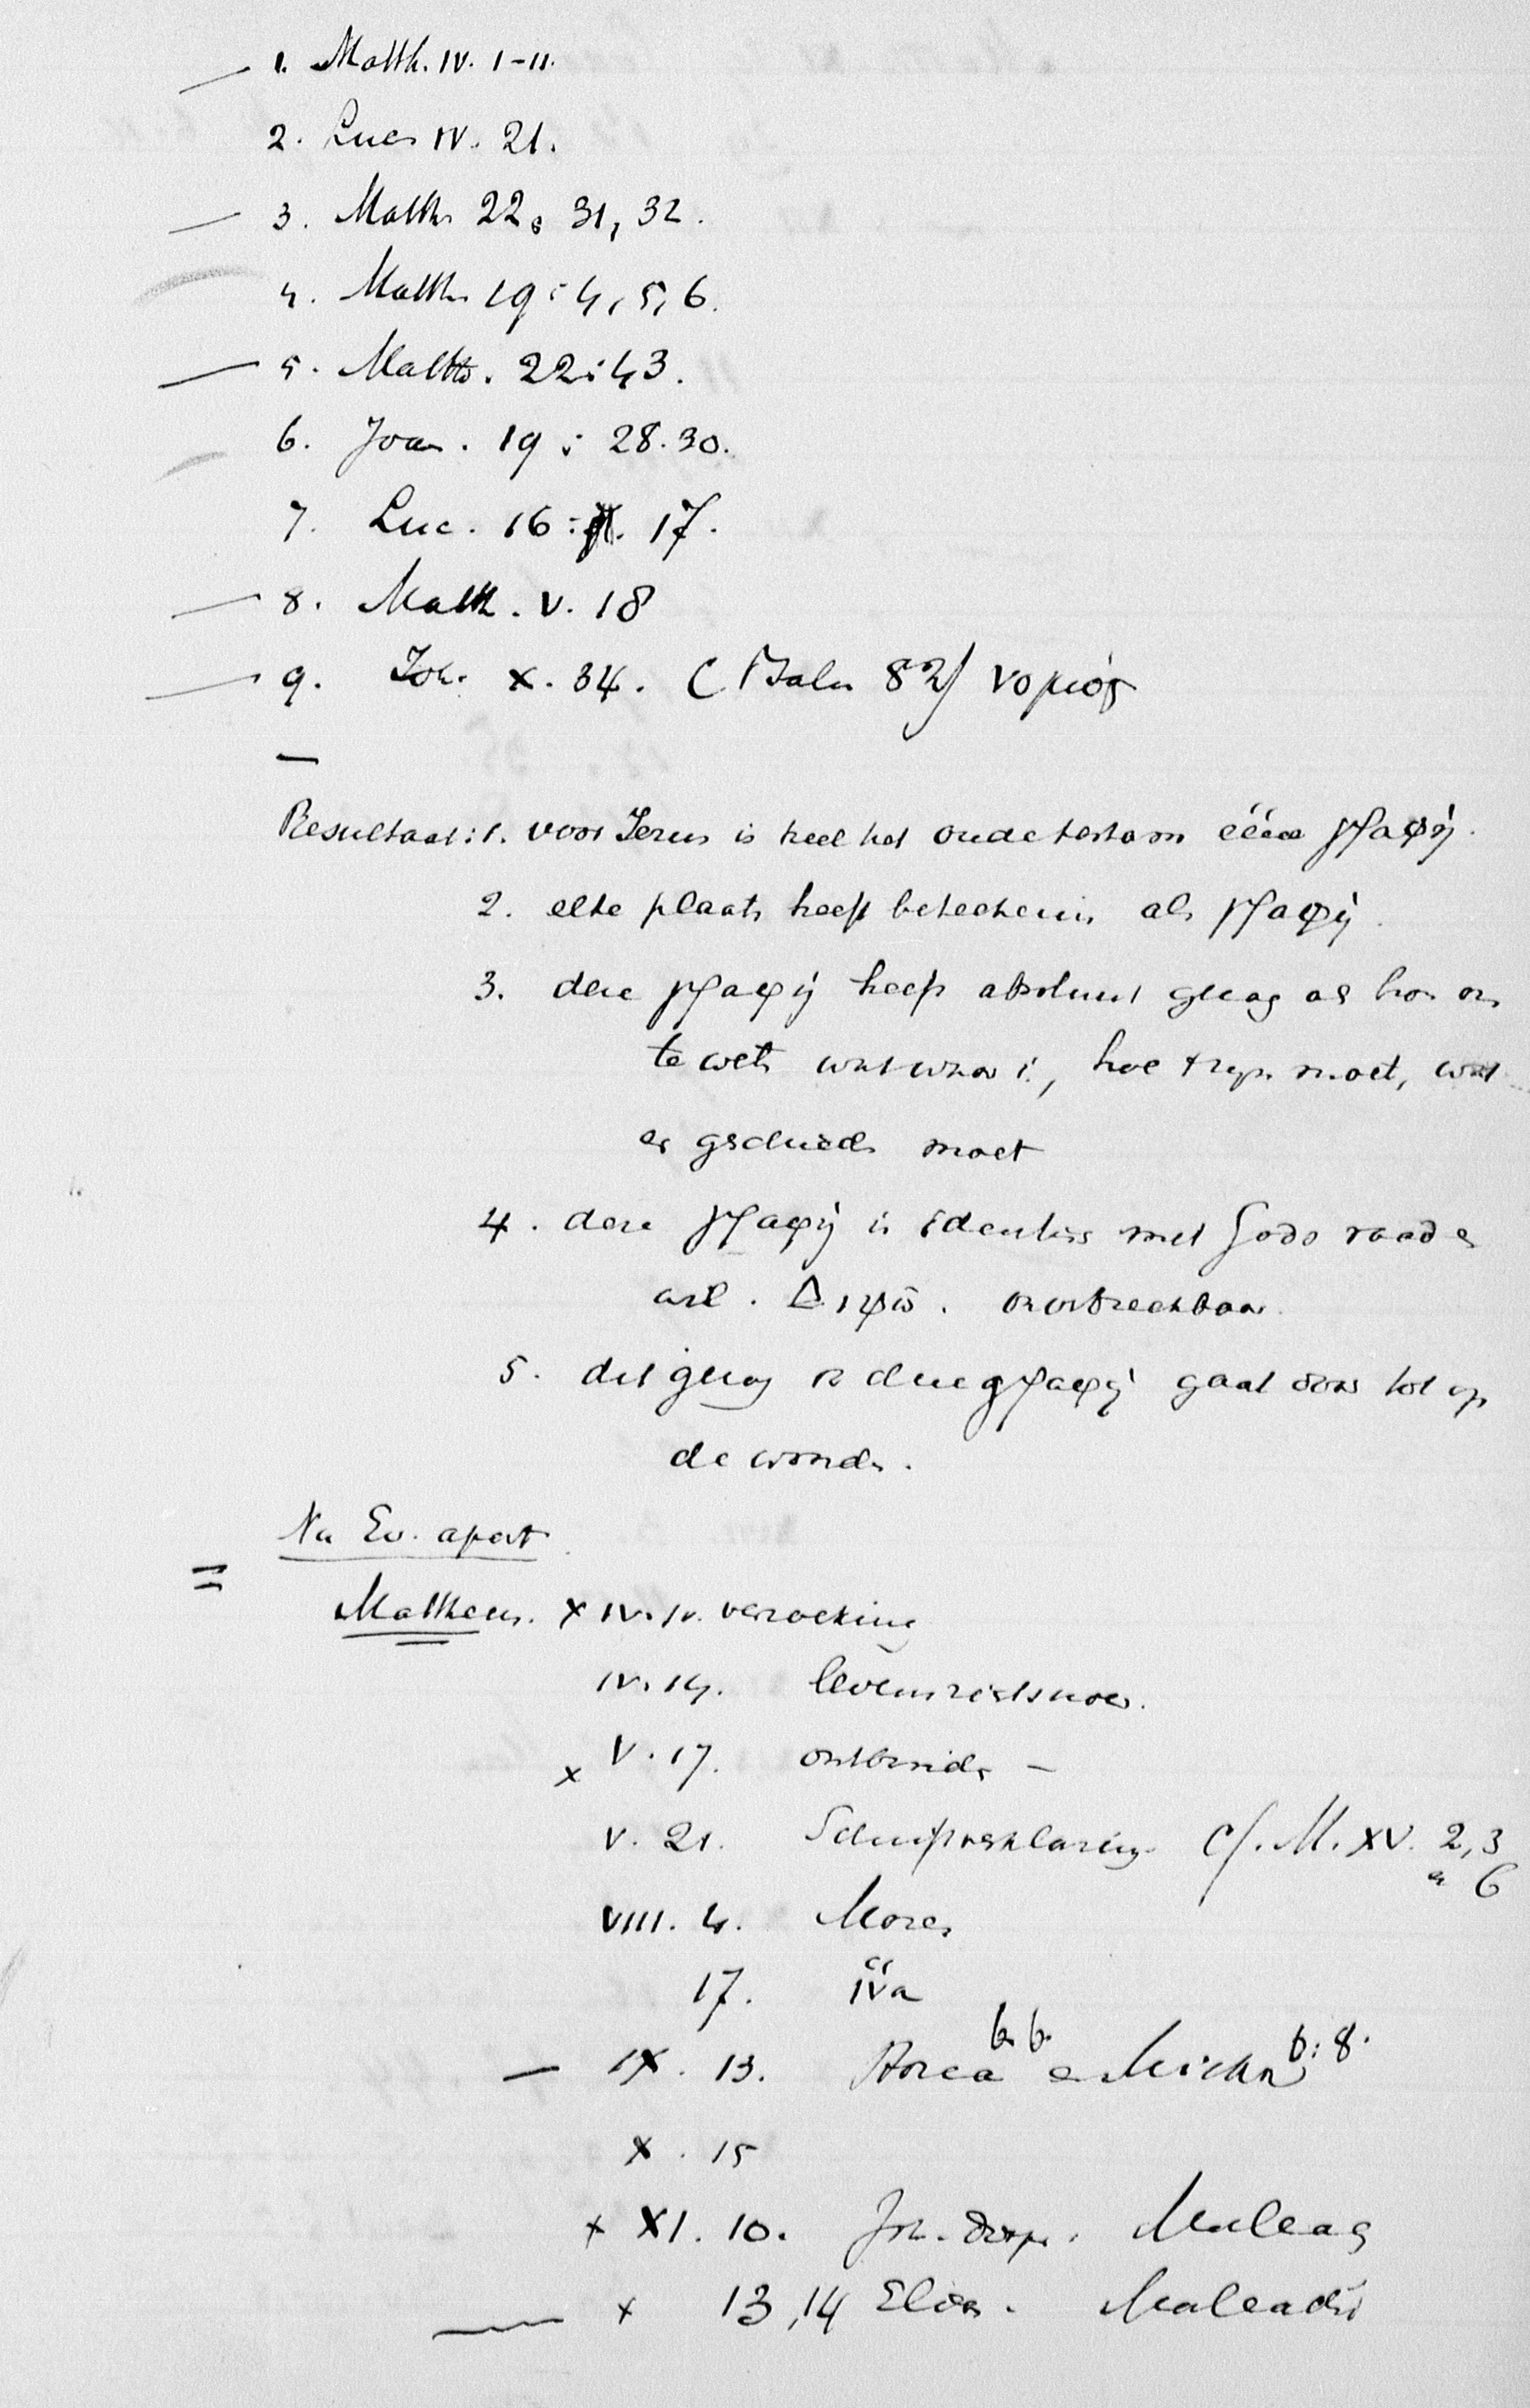 — 1. Matth. IV. 1-11.
2. Luc. IV. 21.
— 3. Matth. 22: 31, 32.
4. Matth. 19:4, 5, 6.
— 5. Matth. 22:43.
6. Joan. 19: 28.30.
7. Luc. 16: 17.
— 8. Matth. V. 18
— 9. Joh. X. 34. (Psalm 82) νομιός
—
Resultaat: 1. voor Jezus is heel het oude testam ééne γραφή.
2. elke plaats heeft beteekenis als γραφή.
3. deze γραφή heeft absoluut gezag als bron om
te weten wat waar is, hoe 't zijn moet, wat
er geschieden moet
4. deze γραφή is identisch met Gods raad en
wil. Δ. onverbreekbaar.
5. dit gezag deze γραφή gaat door tot op
de woorden.
Nu Ev. apart
= Mattheus. x IV. verzoeking
IV. 14. levensrichtsnoer.
x V. 17. ontbinden —
V. 21. Schriftverklaring. Cf. M. XV. 2,3
en 6
VIII. 4. Mozes
17. ἵνα
— IX. 13. Hosea 6.6. en Micha 6:8.
X. 15
x XI. 10. Joh. Maleag
— x 13,14 Elias. Maleachi